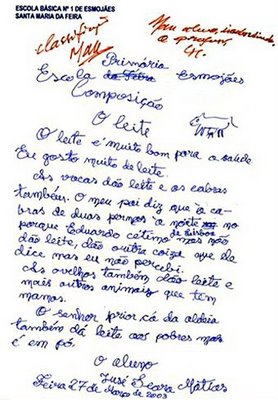 ESCOLA BÁSICA Nº 1 DE ESMOJÃES
SANTA MARIA DA FEIRA
classifiq
Mau
Mau aluno, insubordinado
o profess
Primária
Escola da Feira Esmojães
Composição
O leite
O leite é muito bom para a saúde
Eu gosto muito de leite.
As vacas dão leite e as cabras
também. O meu pai diz que à ca-
bras de duas pernas a norte no
de Lisboa
parque Eduardo cétimo mas não
dão leite, dão outra coiza que ele
dice mas eu não percebi.
As ovelhas também dão leite e
mais outros animais que tem
mamas.
O senhor prior cá da aldeia
também dá leite aos pobres mas
é em pó.
O aluno
José Seara Matias
Feira 27 de Março de 2003